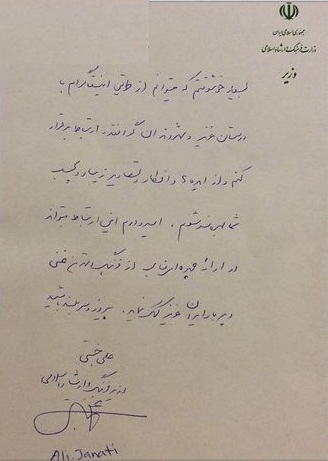 جمهوری اسلامی ایران
وزارت فرهنگ و ارشاد اسلامی
وزیر
بسیار خوشوقتم که میتوانم از طریق اینستاگرام با
دوستان عزیز و شهروندان گرانقدر ارتباط برقرار
کنم و از ایده ها و افکار و تصاویر زیبا و دلچسب
شما بهره‌مند شوم. امیدوارم این ارتباط بتواند
در ارائه چهره‌ای از فرهنگ و تمدن غنی
و پربار ایران عزیز کمک نماید. پیروز و سربلند باشید
علی جنتی
وزیر فرهنگ و ارشاد اسلامی
Ali Janati